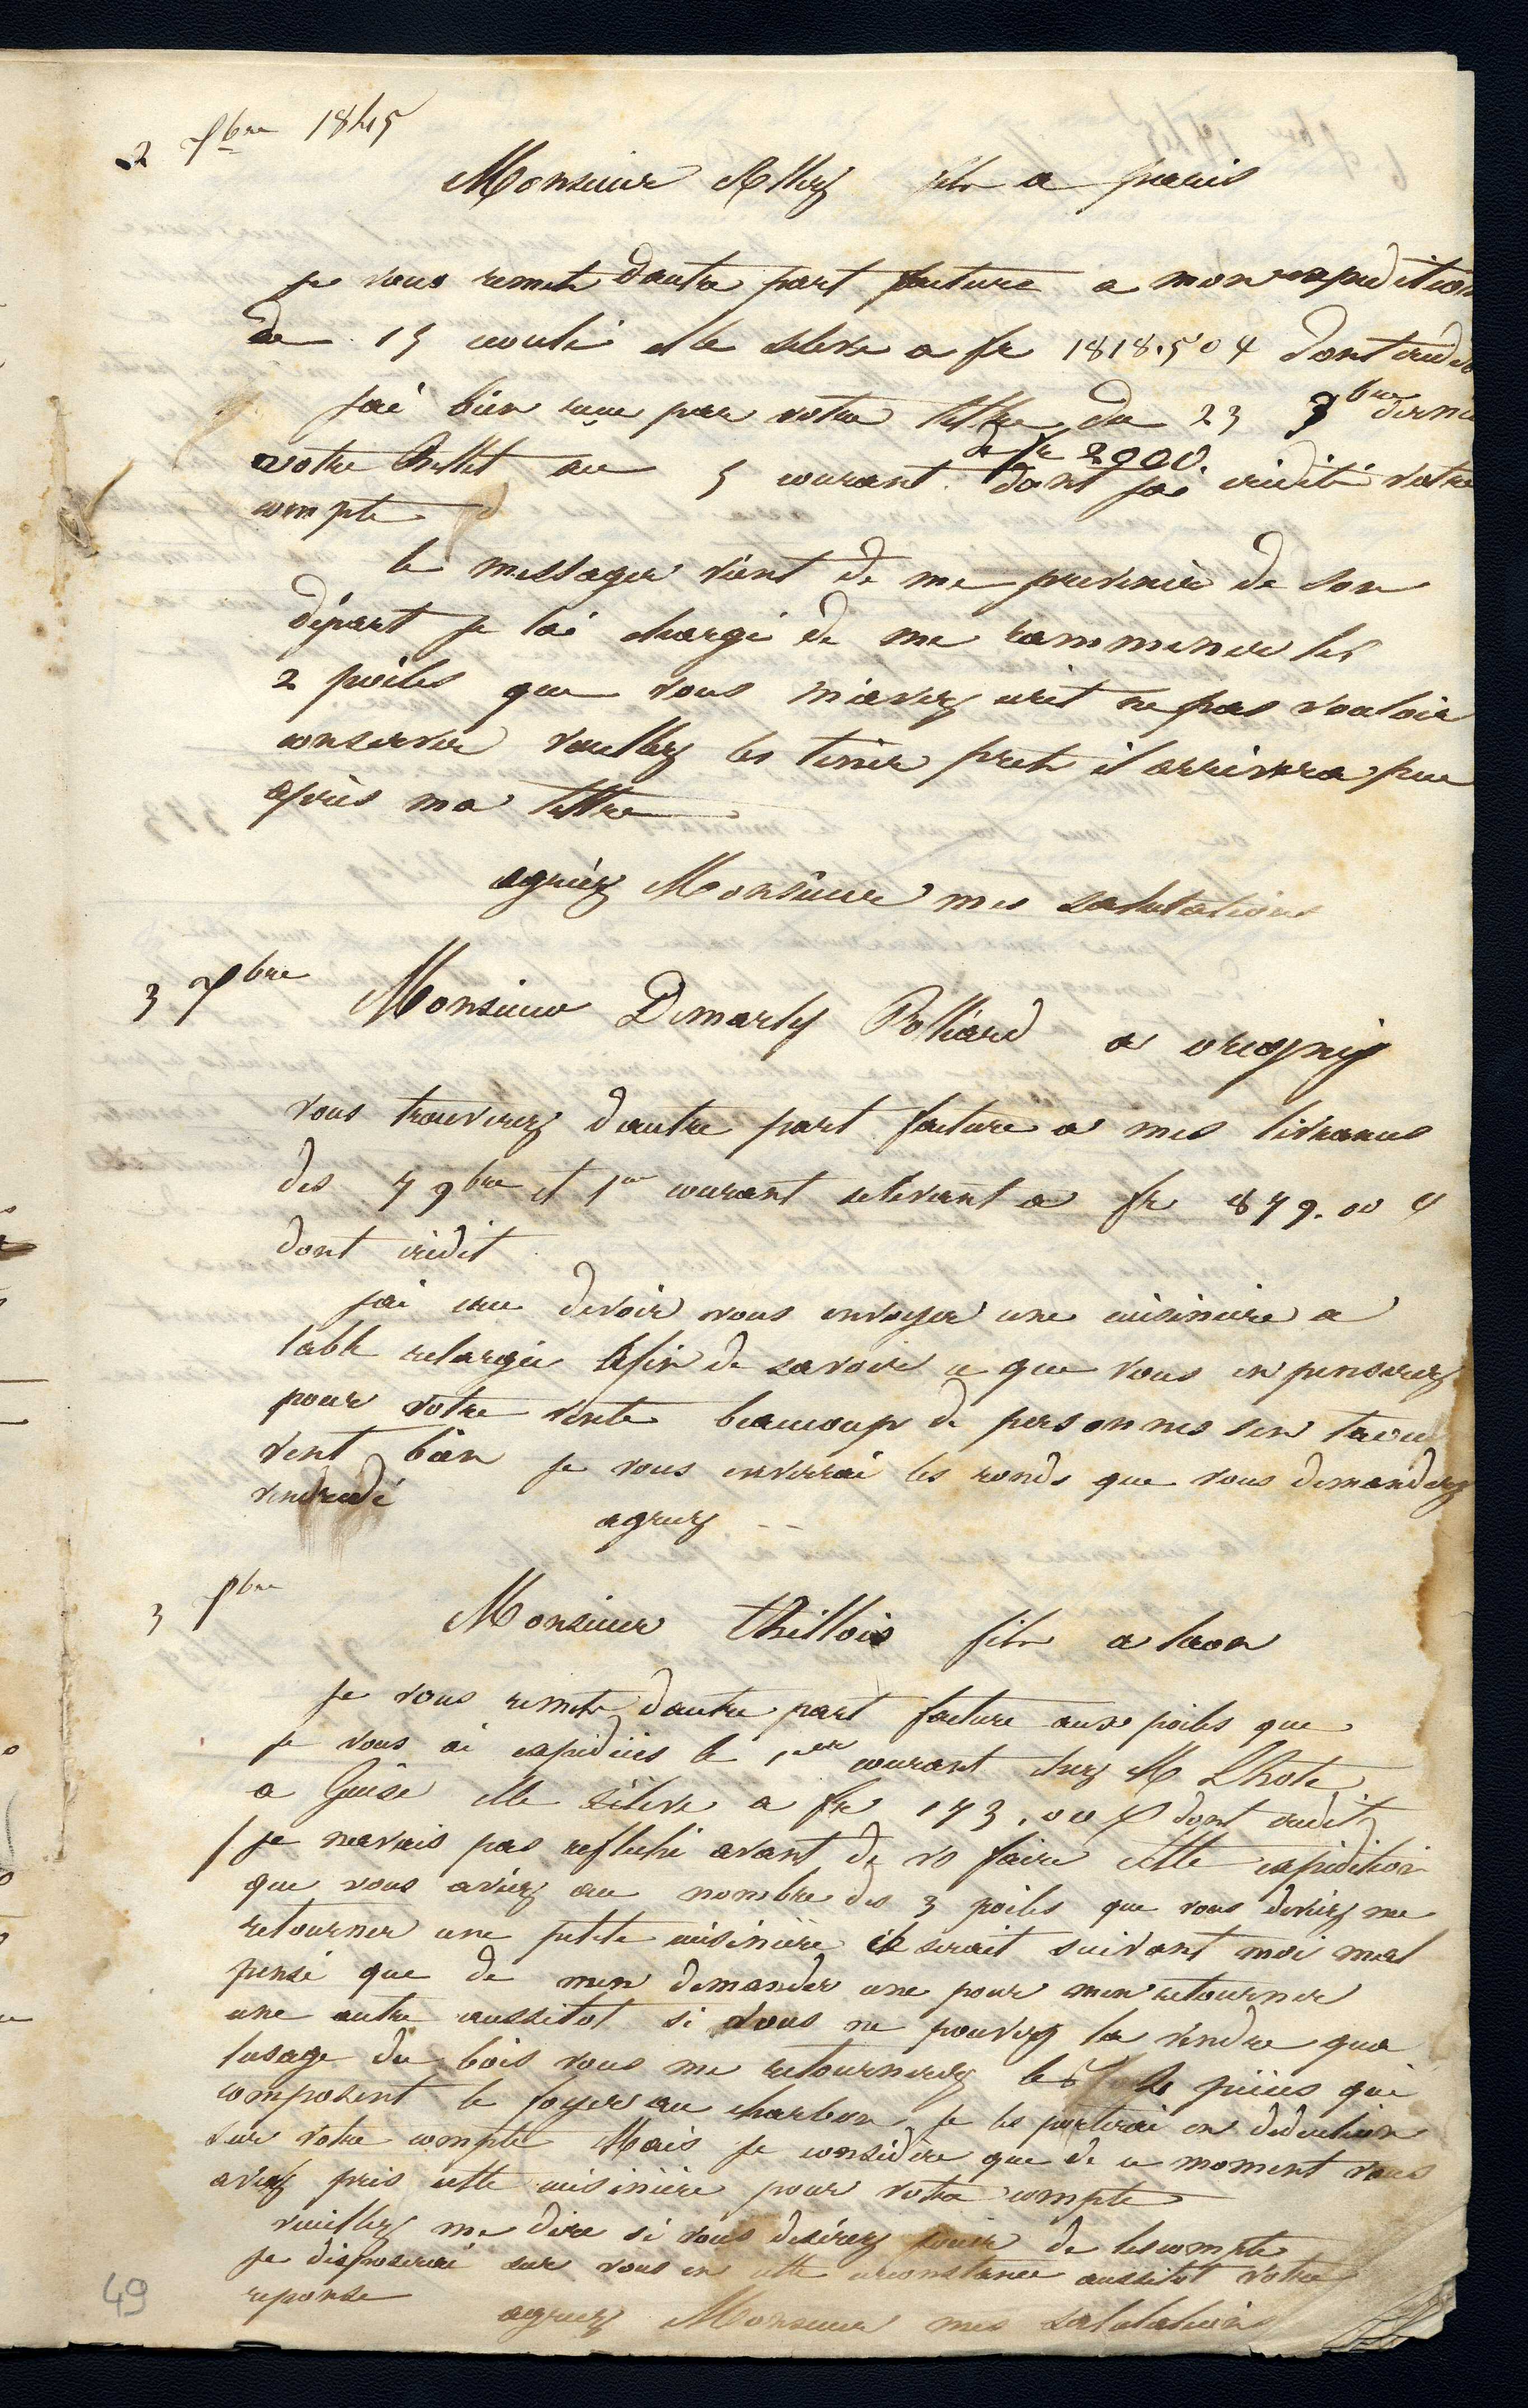 2 9bre 1845
Monsieur Allez fils a paris
je vous remets dautre part facture a mon expedition
de 15 ecoulé elle seleve a fr 1818.50 dont credit
jai bien recu par votre lettre du 23 9bre dernier
votre Billet au 5 courant de fr 2000. dont jai crédité votre
compte
le messager vient de me prevenir de son
départ je lai chargé de me rammener les
2 poëles que vous m'avez écrit ne pas vouloir
conserver veuillez les tenir prets il arrivera peu
après ma lettre
agréez Monsieur mes salutations
3 bre Monsieur Demarly Polliard a origny
vous trouverez dautre part facture a mes livrances
des 7 9bre et 1er courant selevant a fr 879.00
dont crédit
jai cru devoir vous envoyer une cuisinière a
table relargie afin de savoir ce que vous en penserez
pour votre vente beaucoup de personnes sen trou
vent bien je vous enverrai les ronds que vous demandez
vendredi
agreez --
3 bre
Monsieur thillois fils a laon
je vous remets dautre part facture aux poiles que
je vous ai expédiés le 1er courant chez M Lhote
a Guise elle s'éleve a fr 173.00 dont credit
je navais pas reflechi avant de vo faire cette expedition
que vous aviez au nombre des 3 poiles que vous deviez me
retourner une petite cuisinière il serait suivant moi mal
pensé que de men demander une pour men retourner
une autre aussitot si vous ne pouvez la vendre qua
lusage du bois vous me retournerez les pièces qui
composent le foyer au charbon je les porterai en deduction
sur votre compte Mais je considère que de ce moment vous
avez pris cette cuisinière pour votre compte
veuillez me dire si vous desirez jouir de lescompte
je disposerai sur vous en cette circonstance aussitot votre
reponse
agreez Monsieur mes salutations
49